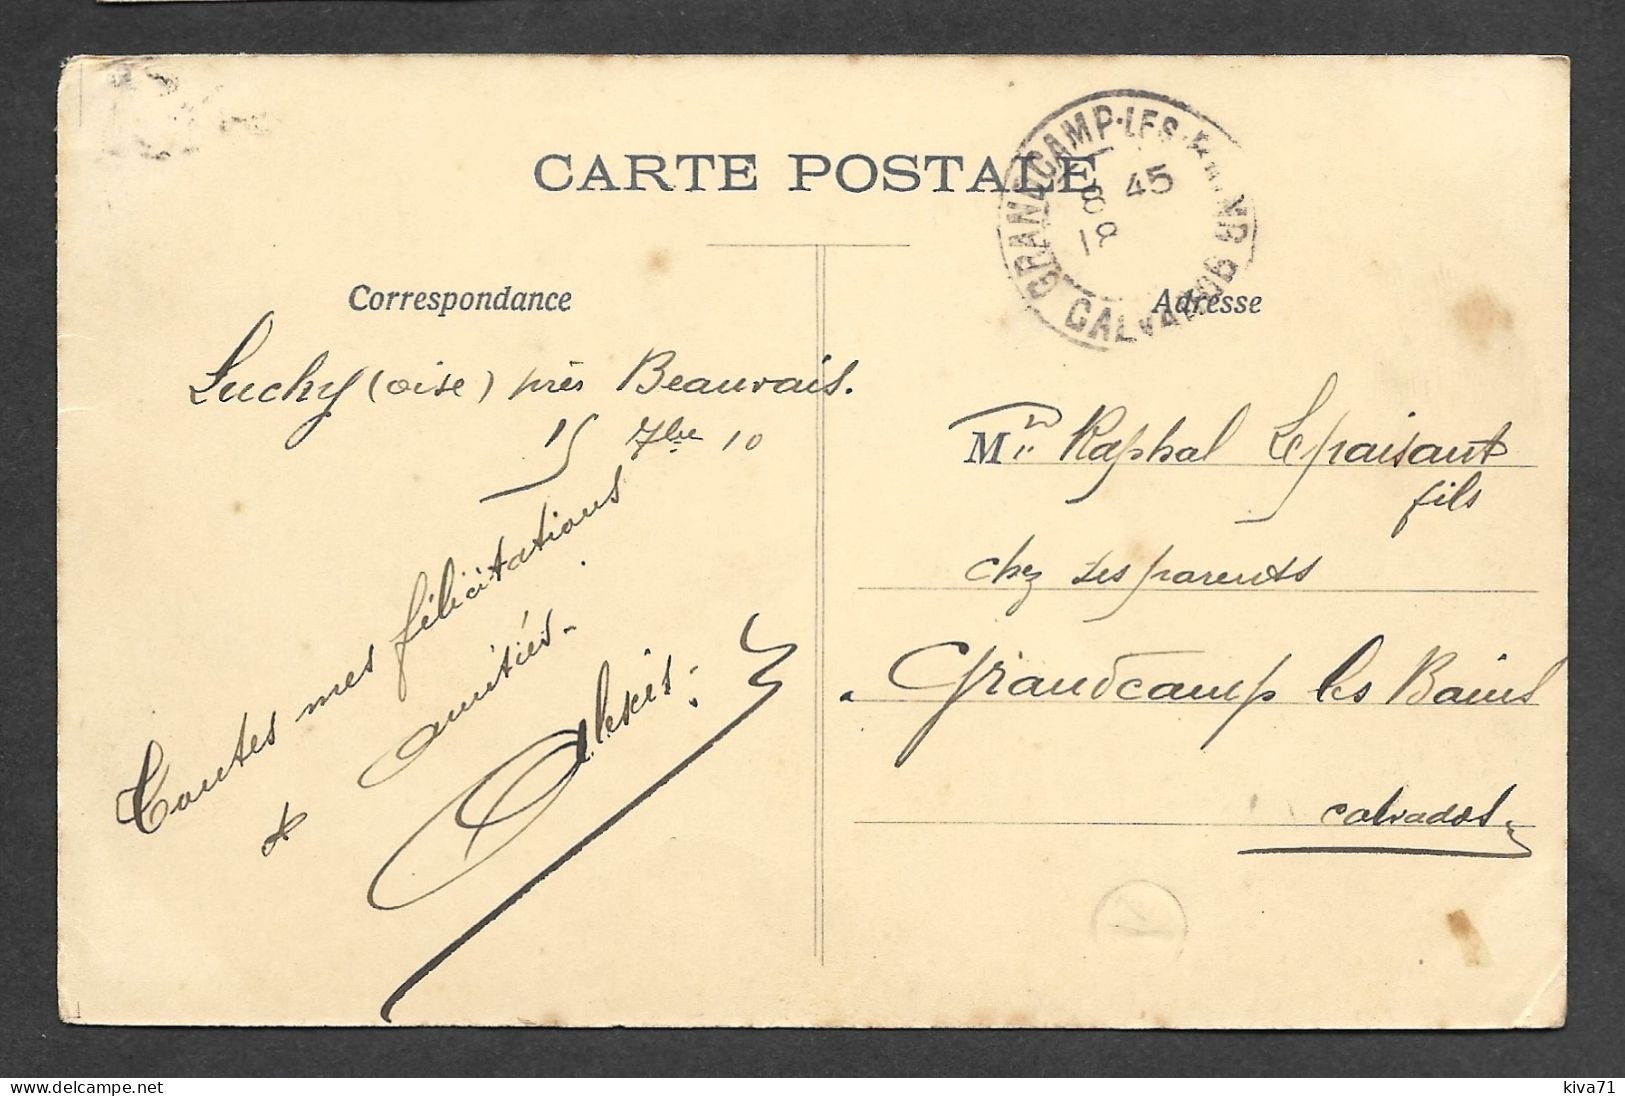 CARTE POSTALE
GRANDCAMP-LES-BAINS
8 45
CALVADOS
Correspondance
Luchy (oise) près Beauvais.
15 7bre 10
Toutes mes félicitations
& amitiés.
Alexis
Adresse
Mr Raphal Lepaisant
fils
chez ses parents
Grandcamp les Bains
Calvados
kiva71